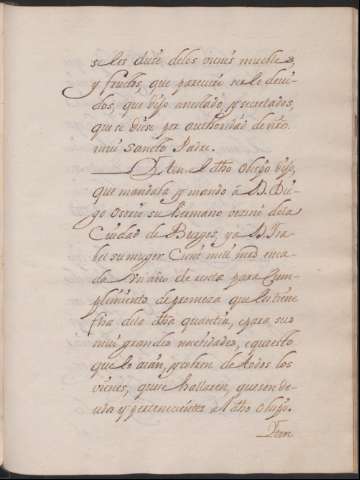 se les diese delos vienes muebles,
y fructos, que parecieren serle devi-
dos, que dijo anulado, y secretados,
que se diese por authoridad de nro.
mui Sancto Padre.
Item el dho obispo dijo,
que mandaba y mando á D. Die-
go Osorio su hermano vezino dela
Ciudad de Burgos, y a D. Isa-
bel su muger Cient mill mrs en ca-
da un año de renta para Cum-
plimiento de promesa que les tiene
fha dela dha quantia, e para sus
mui grandes necesidades, e questo
que lo aian, y cobren de todos los
vienes, que se hallaren, que son de-
uda y pertenecientes al dho obispo.
Item